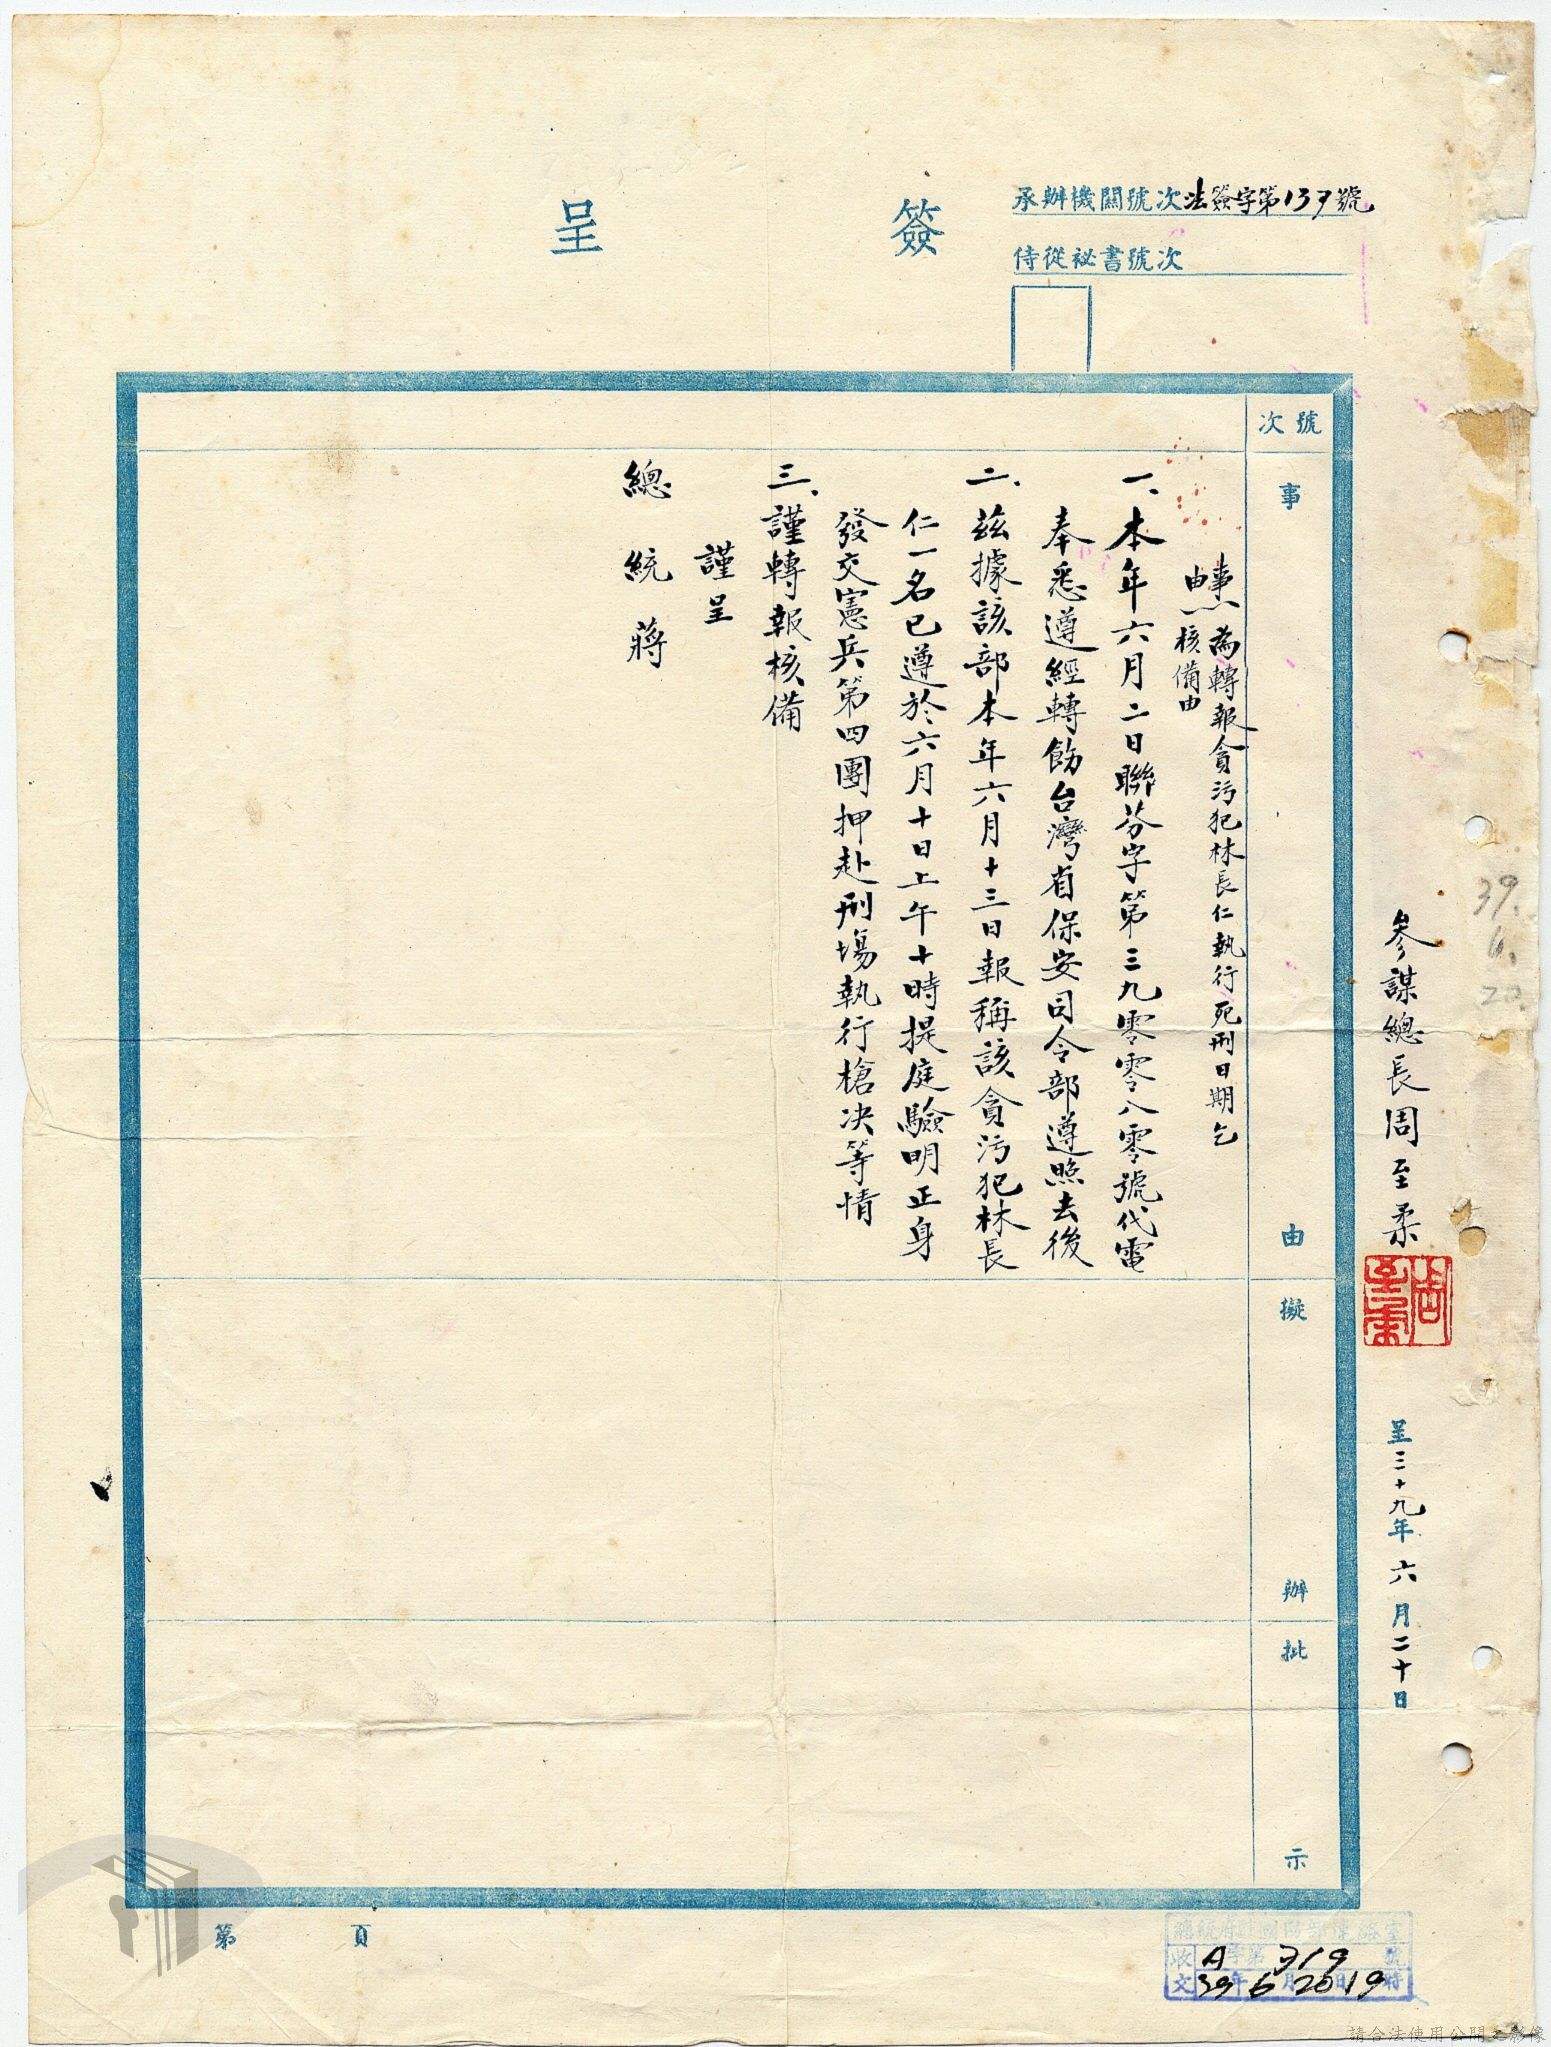 簽呈
承辦機關號次法簽字第137號
侍從祕書號次
參謀總長周至柔
周至柔
呈三十九年六月二十日
39.6.20.
號次
事由
擬辦
批示
事由：為轉報貪污犯林長仁執行死刑日期乞
核備由
一、本年六月二日聯芬字第三九零零八零號代電
奉悉遵經轉飭台灣省保安司令部遵照去後
二、茲據該部本年六月十三日報稱該貪污犯林長
仁一名已遵於六月十日上午十時提庭驗明正身
發交憲兵第四團押赴刑場執行槍决等情
三、謹轉報核備
謹呈
總統蔣
第 頁
收文 A字第319號
39年6月20日19時
請合法使用公開之影像